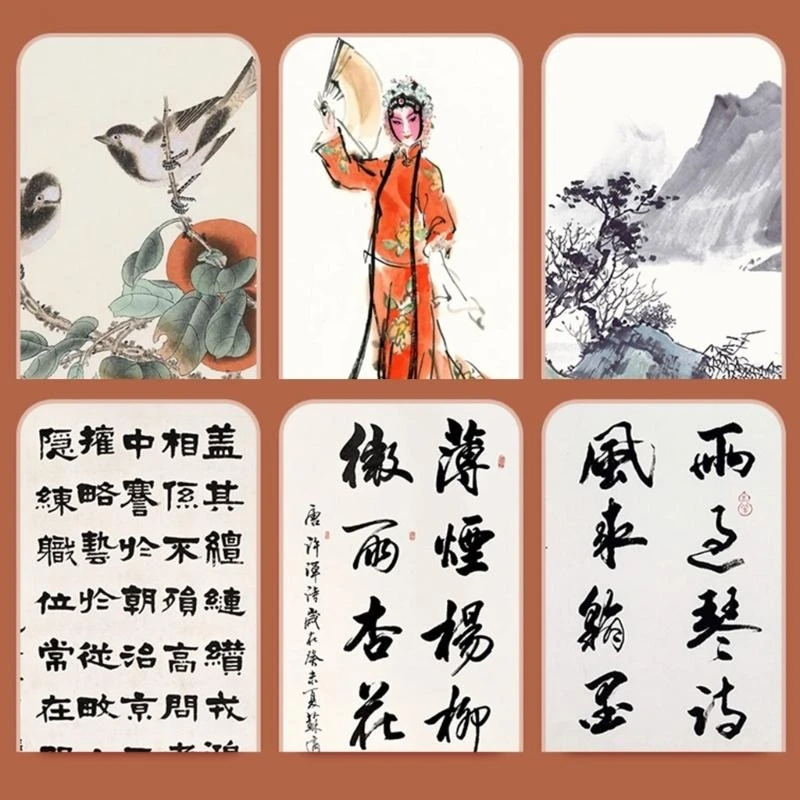 盖其繵縺纘戎
相係不殞高問
中謇於朝治京
擁略藝於從畋
隱練職位常在
薄煙楊柳
微雨杏花
唐許渾詩歲在癸未夏蘇
雨過琴詩
風來翰墨